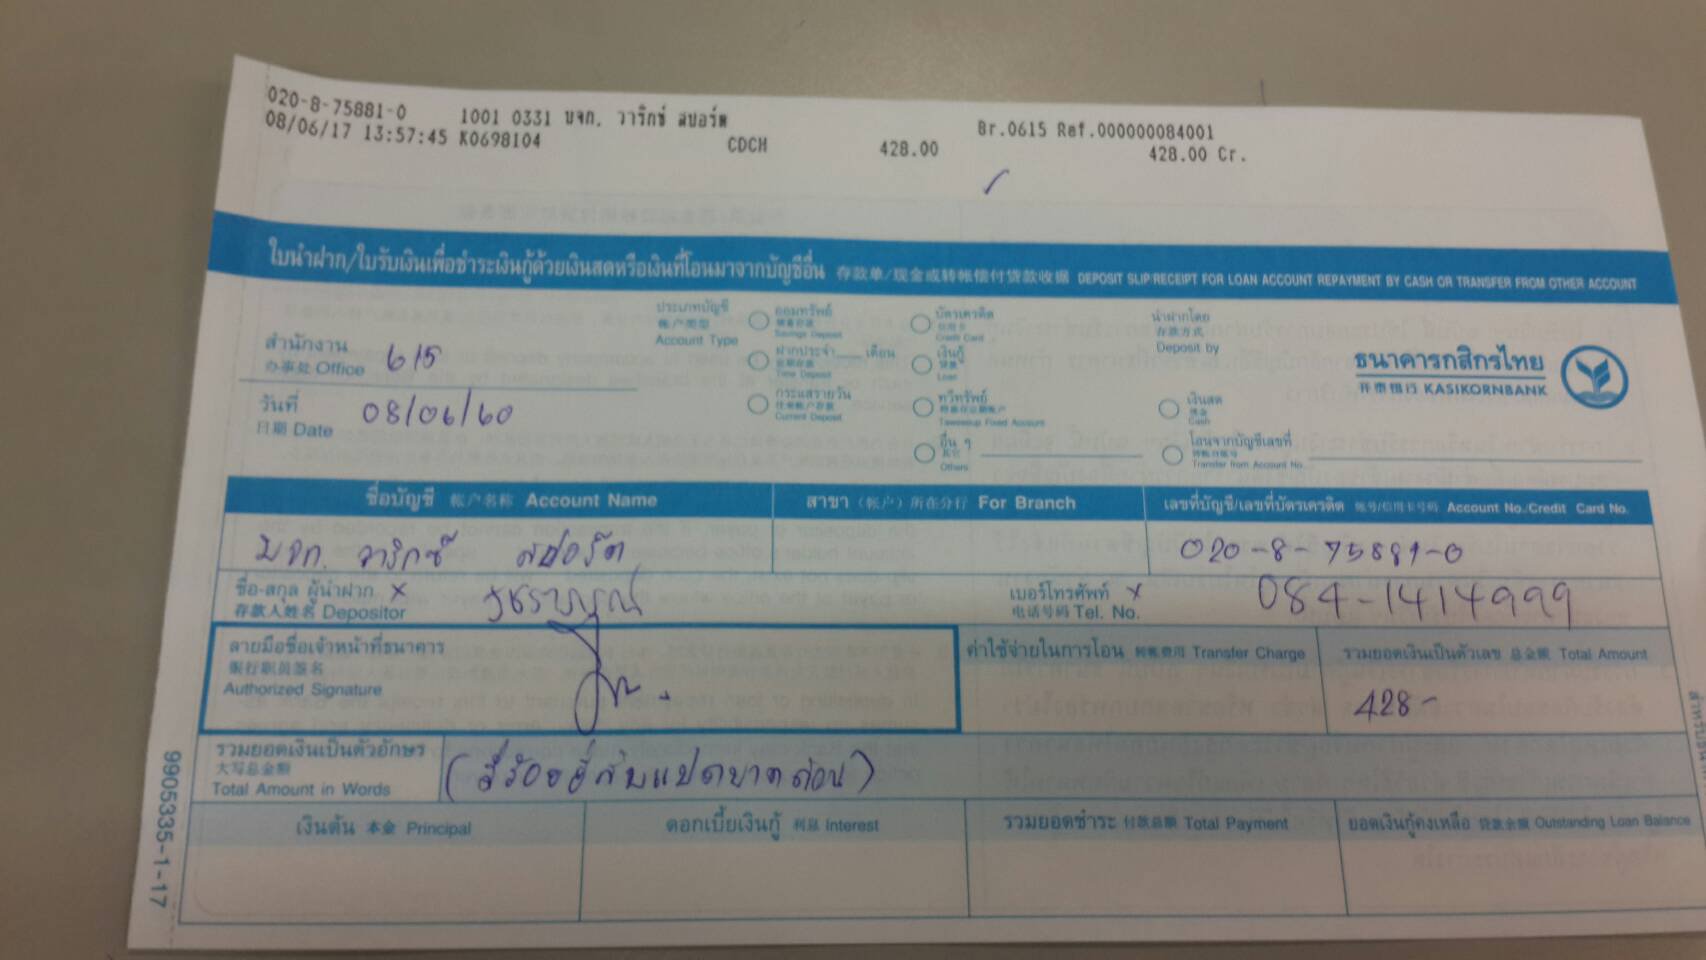 020-8-75881-0 1001 0331 บจก. วาริกซ์ สปอร์ต Br.0615 Ref.000000084001
08/06/17 13:57:45 K0698104 CDCH 428.00 428.00 Cr.
ใบนำฝาก/ใบรับเงินเพื่อชำระเงินกู้ด้วยเงินสดหรือเงินที่โอนมาจากบัญชีอื่น 存款单/现金或转帐偿付贷款收据 DEPOSIT SLIP/RECEIPT FOR LOAN ACCOUNT REPAYMENT BY CASH OR TRANSFER FROM OTHER ACCOUNT
สำนักงาน 615
办事处 Office
วันที่ 08/06/60
日期 Date
ประเภทบัญชี
帐户类型
Account Type
ออมทรัพย์
储蓄存款
Savings Deposit
ฝากประจำ___เดือน
定期存款
Time Deposit
กระแสรายวัน
往来帐户存款
Current Deposit
บัตรเครดิต
信用卡
Credit Card
เงินกู้
贷款
Loan
ทวีทรัพย์
Taweesup Fixed Account
อื่น ๆ
其它
Others
นำฝากโดย
存款方式
Deposit by
เงินสด
现金
Cash
โอนจากบัญชีเลขที่
转帐账号
Transfer from Account No.
ธนาคารกสิกรไทย
开泰银行 KASIKORNBANK
ชื่อบัญชี 帐户名称 Account Name
สาขา (帐户) 所在分行 For Branch
เลขที่บัญชี/เลขที่บัตรเครดิต 帐号/信用卡号码 Account No./Credit Card No.
บจก. วาริกซ์ สปอร์ต 020-8-75881-0
ชื่อ-สกุล ผู้นำฝาก x
存款人姓名 Depositor
เบอร์โทรศัพท์ x 084-1414999
电话号码 Tel. No.
ลายมือชื่อเจ้าหน้าที่ธนาคาร
银行职员签名
Authorized Signature
ค่าใช้จ่ายในการโอน 转帐费用 Transfer Charge
รวมยอดเงินเป็นตัวเลข 总金额 Total Amount
428-
รวมยอดเงินเป็นตัวอักษร
大写总金额
Total Amount in Words
(สี่ร้อยยี่สิบแปดบาทถ้วน)
เงินต้น 本金 Principal
ดอกเบี้ยเงินกู้ 利息 Interest
รวมยอดชำระ 付款总额 Total Payment
ยอดเงินกู้คงเหลือ 贷款余额 Outstanding Loan Balance
9905335-1-17